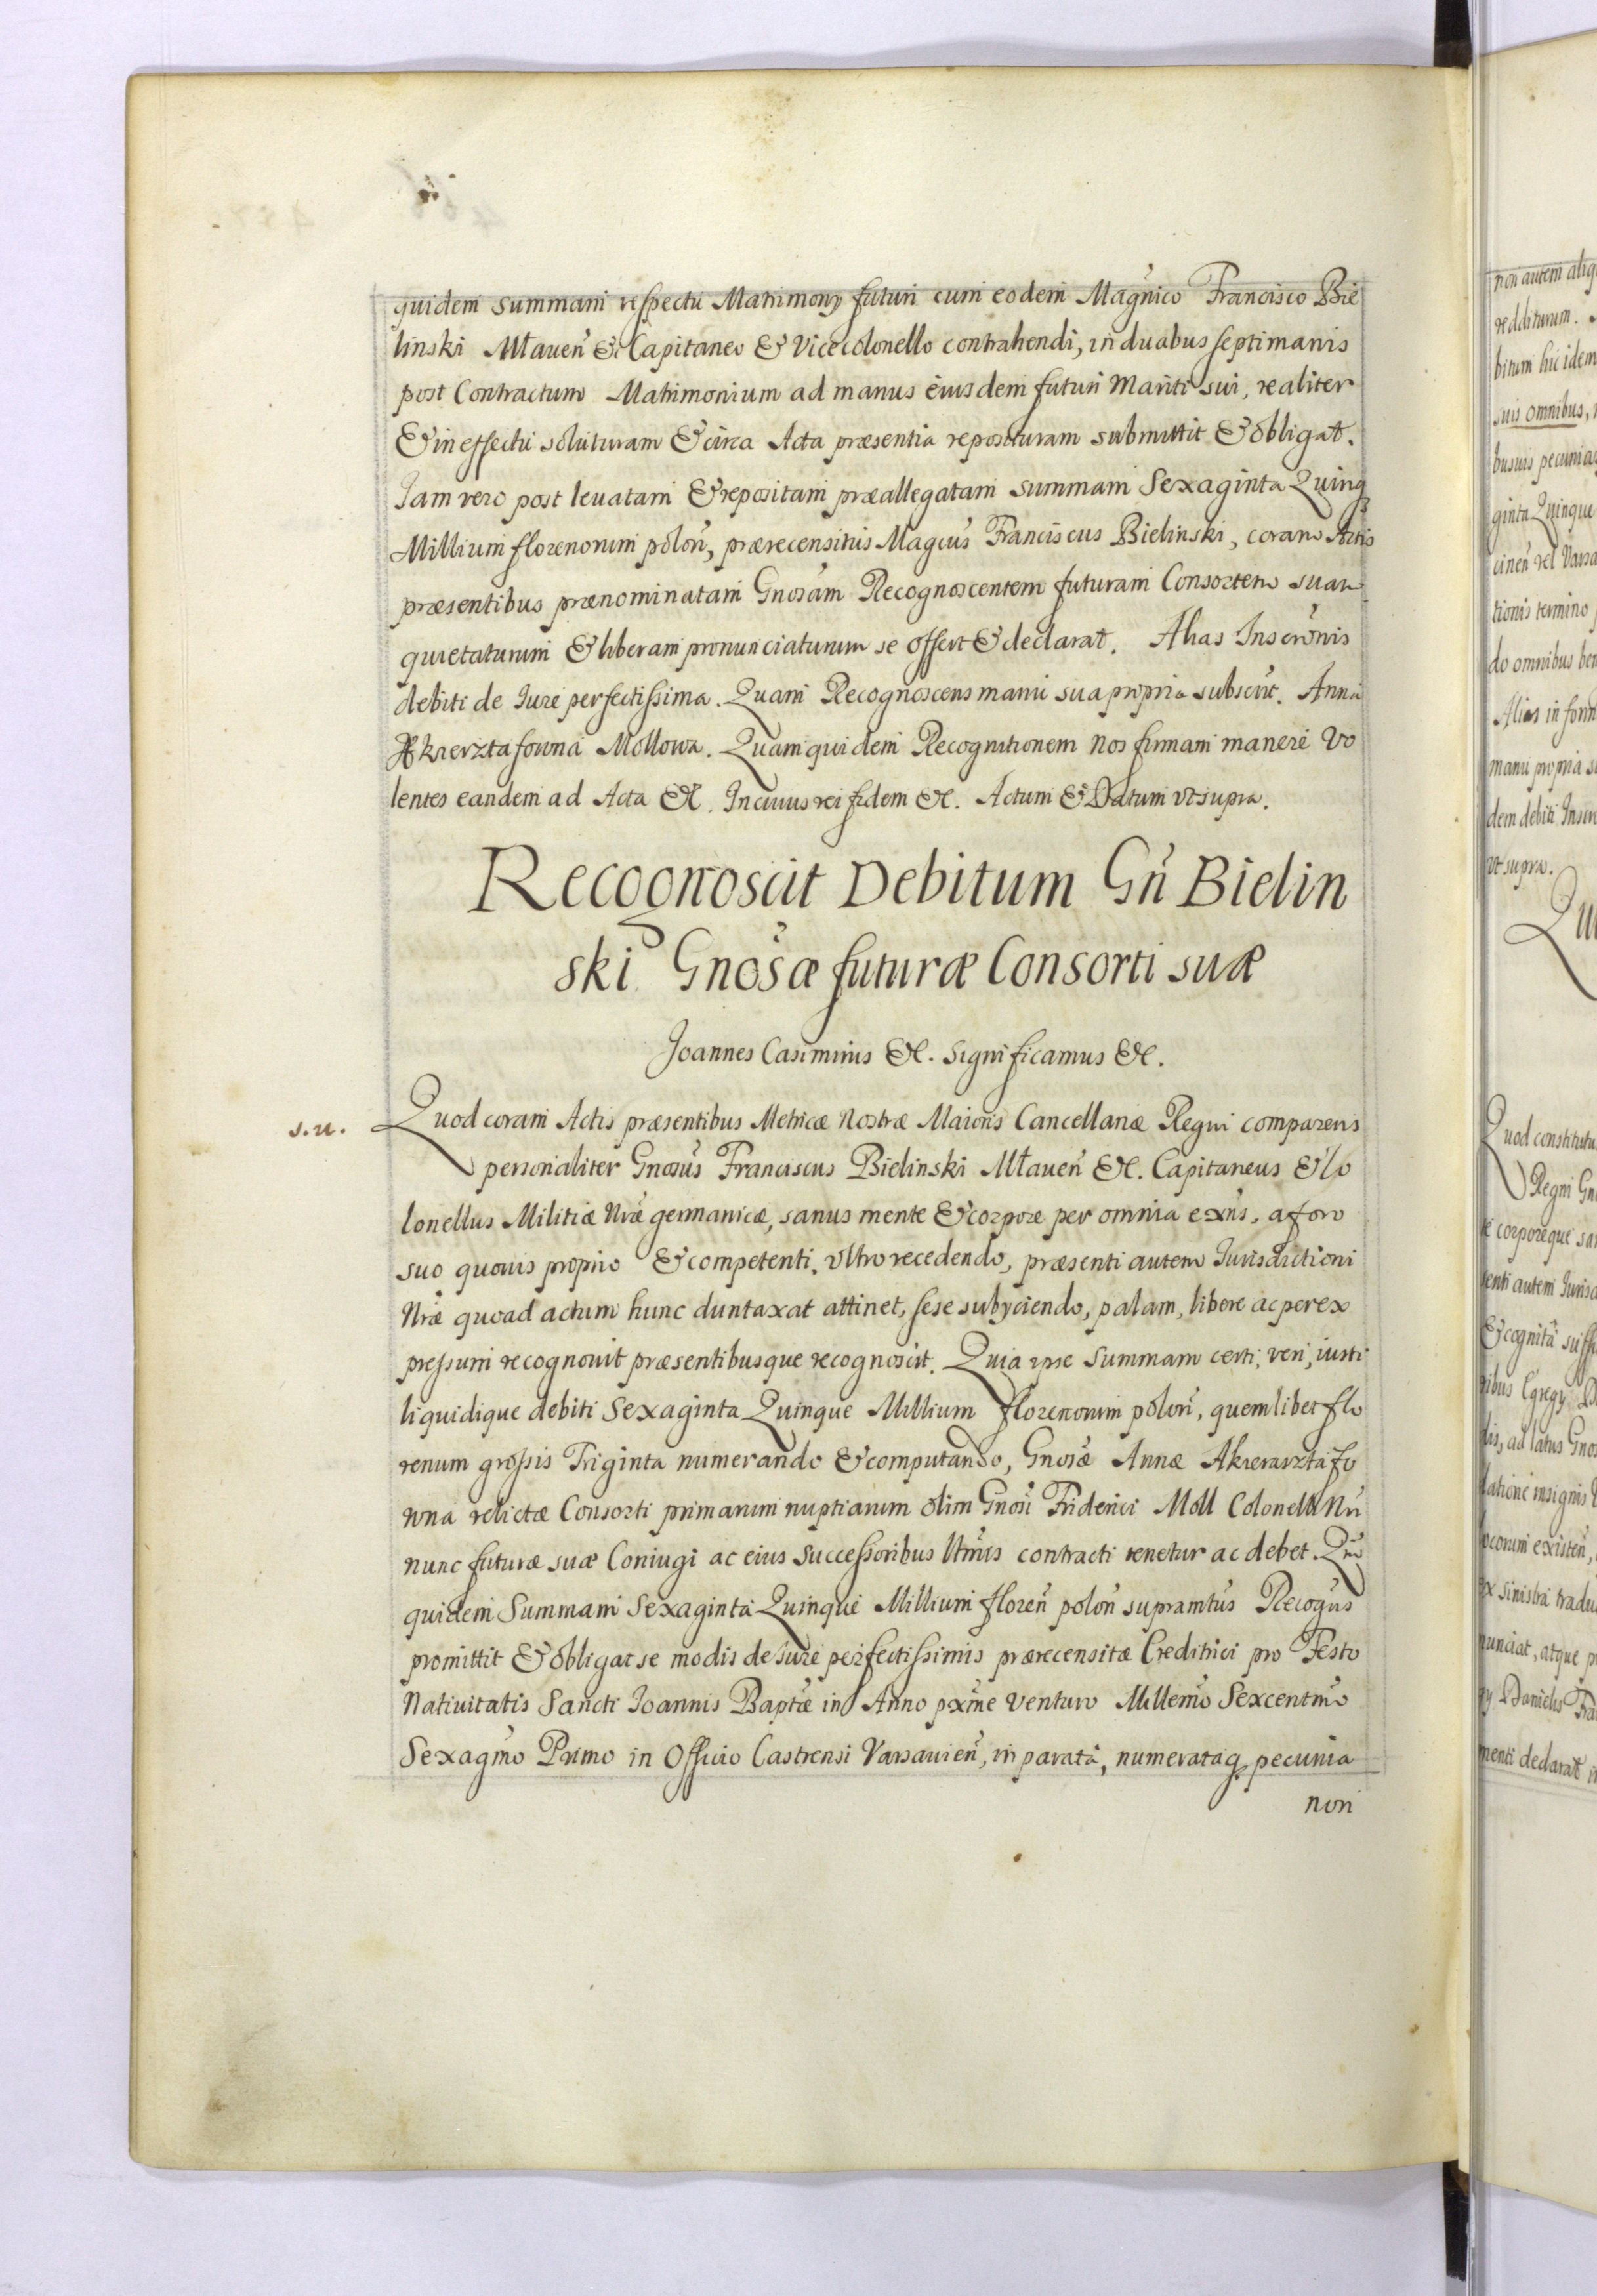 quidem summam respectu Matrimonij futuri cum eodem Magnico Francisco Bie
linski Mławeñ &c Capitaneo & Vicecolonello contrahendi, in duabus septimanis
post Contractum Matrimonium ad manus eiusdem futuri Mariti sui, realiter
& in effectu soluturam & circa Acta præsentia reposituram submittit & obligat.
Iam vero post leuatam & repositam præallegatam summam Sexaginta Quinq
Millium florenorum poloñ, prærecensitus Magcus Franciscus Bielinski, coram Actis
præsentibus prænominatam Gnosam Recognoscentem futuram Consortem suam
quietaturum & liberam pronunciaturum se offert & declarat. Alias Inscrõnis
debiti de Iure perfectissima. Quam Recognoscens manu sua propria subscrit. Anna
Akierztafowna Mollowa. Quam quidem Recognitionem Nos firmam manere Vo
lentes eandem ad Acta &c. In cuius rei fidem &c. Actum & Datum vt supra.
Recognoscit Debitum Gñ Bielin
ski Gnosæ futuræ Consorti suæ
Joannes Casimirus &c. Significamus &c.
s.u.
Quod coram Actis præsentibus Metricæ Nostræ Maioris Cancellariæ Regni comparens
personaliter Gnosus Franciscus Bielinski Mławeñ &c. Capitaneus & Co
lonellus Militiæ Nræ germanicæ, sanus mente & corpore per omnia exñs, a foro
suo quouis proprio & competenti. Vltro recedendo, præsenti autem Iurisdictioni
Nræ quoad actum hunc duntaxat attinet, sese subijciendo, palam, libere ac per ex
pressum recognouit præsentibusque recognoscit. Quia ipse Summam certi, veri, iusti
liquidique debiti Sexaginta Quinque Millium florenorum poloñ, quemlibet flo
renum grossis Triginta numerando & computando, Gnosæ Annæ Akierarztafo
wna relictæ Consorti primarum nuptiarum olim Gnosi Friderici Moll Colonelli Nri
nunc futuræ suæ Coniugi ac eius successoribus ltmis contracti tenetur ac debet. Qm
quidem Summam Sexaginta Quinque Millium floreñ poloñ supramtus Recogñs
promittit & obligat se modis de iure perfectissimis prærecensitæ Creditrici pro Festo
Natiuitatis Sancti Ioannis Baptæ in Anno pxme venturo Millemo Sexcentmo
Sexagmo Primo in Officio Castrensi Varsauieñ, in parata, numerataq pecunia
non
non autem aliq
redditurum.
bitum hic idem
suis omnibus,
busuis pecunia
ginta Quinque
cineñ vel Varsa
tionis termino
do omnibus
Alias in form
manu propria s
dem debiti Inscr
vt supra.
Quod constitutu
Regni Gn
corporeque sa
autem Iuris
& cognita suffi
Egregij
ad latus Gnos
insignis
existeñ,
sinistra tradu
atque p
Danielis
declarat